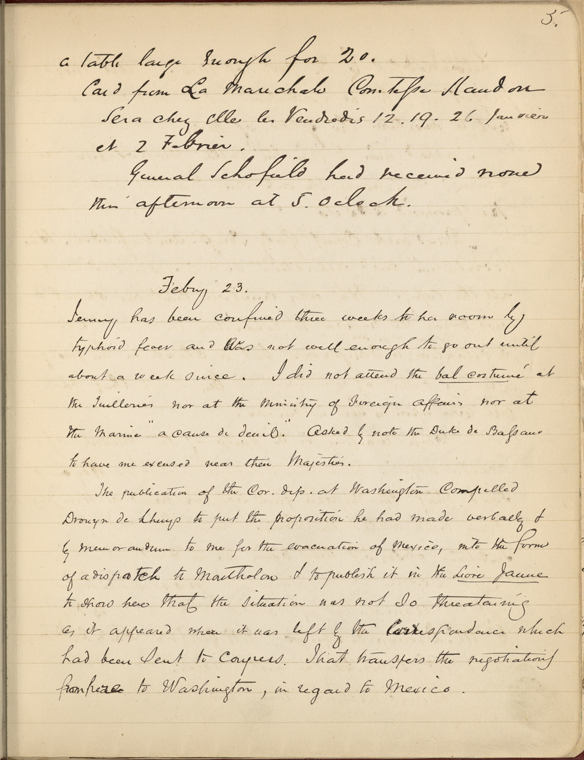 5.
a table large enough for 20.
Card from La Marechale Comtesse Randon
Sera chez elle les Vendredis 12. 19. 26 Janvier
et 2 Febrier.
General Schofield had received none
this afternoon at 5. oclock.
Febuy 23.
Jenny has been confined three weeks to her room by
typhoid fever and was not well enough to go out until
about a week since. I did not attend the bal costumé at
the Tuilleries nor at the Ministry of Foreign affairs nor at
the Marine "a cause de deuil". Asked by note the Duke de Bassano
to have me excused near their Majesties.
The publication of the Cor. dip. at Washington compelled
Drouyn de Lhuys to put the proposition he had made verbally &
by memorandum to me for the evacuation of Mexico, into the form
of a dispatch to Montholon & to publish it in the Livre Jaune
to show here that the situation was not so threataning
as it appeared when it was left by the Correspondence which
had been sent to Congress. That transfers the negotiations
to Washington, in regard to Mexico.